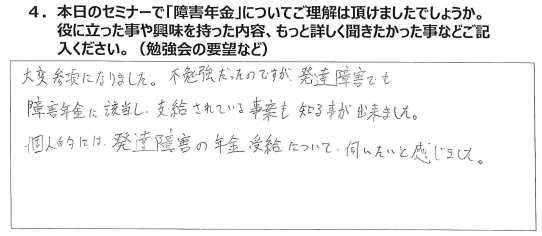 ４．本日のセミナーで「障害年金」についてご理解は頂けましたでしょうか。
役に立った事や興味を持った内容、もっと詳しく聞きたかった事などご記
入ください。（勉強会の要望など）
大変参項になりました。不勉強だったのですが、発達障害でも
障害年金に該当し、支給されている事案も知る事が出来ました。
個人的には、発達障害の年金受給について、伺いたいと感じました。